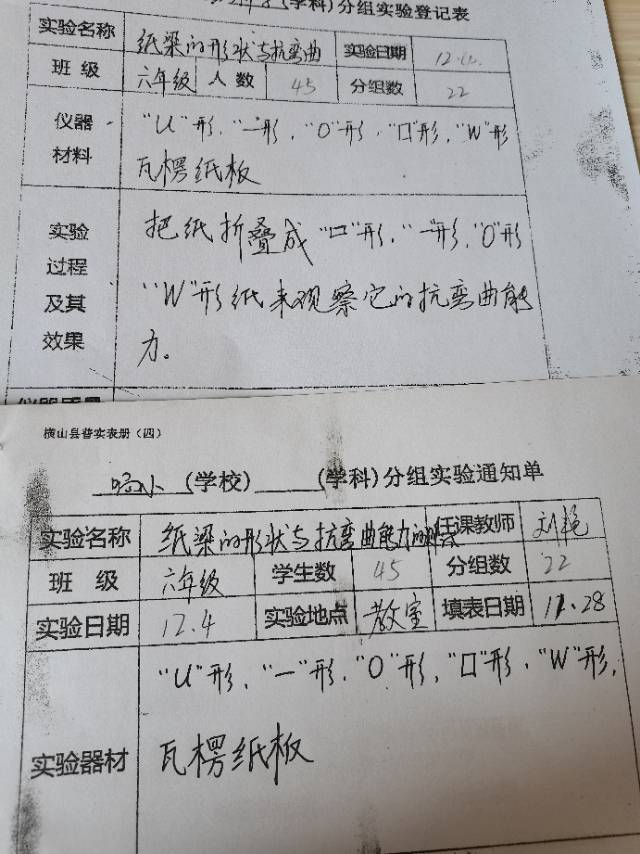 (学科)分组实验登记表
实验名称 纸梁的形状与抗弯曲 实验日期
班级 六年级 人数 45 分组数 22
仪器材料 "U"形,"一"形,"O"形,"口"形,"W"形
瓦楞纸板
实验过程及其效果 把纸折叠成"口"形,"一"形,"O"形
"W"形纸来观察它的抗弯曲能
力。
横山县普实表册(四)
(学校) (学科)分组实验通知单
实验名称 纸梁的形状与抗弯曲能力的 任课教师 刘艳
班级 六年级 学生数 45 分组数 22
实验日期 12.4 实验地点 教室 填表日期 11.28
实验器材 "U"形,"一"形,"O"形,"口"形,"W"形,
瓦楞纸板